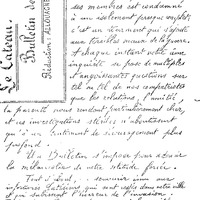 Le Cateau.
Bulletin de
Rédaction: ALLOUCHE
ses membres est condamné
à un isolement presque complet
c'est un tourment qui s'ajoute
aux terribles maux de guerre.
A chaque instant votre
inquiète se pose de multiples
et angoissantes questions sur
tel ou tel de nos compatriotes
que les relations, l'amitié,
la parenté nous rendent particulièrement cher,
et nos investigations stériles n'aboutissent
qu'à un sentiment de découragement plus
profond.
Un Bulletin s'impose pour
de notre stricte famille.
Tout d'abord,
infortunés Catésiens qui sont restés dans notre ville
et qui subissent l'horreur de l'invasion.